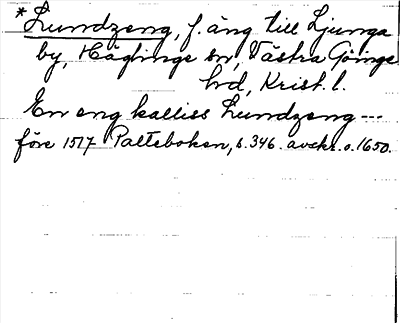 *Lundzeng, f. äng till Ljunga
by, Häglinge sn, Västra Göinge
hd, Krist. l.
En eng kalliss Lundzeng ---
före 1517 Palteboken, s. 346. avskr. o. 1650.